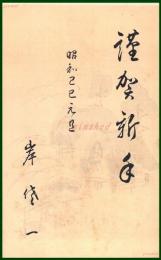 謹賀新年
昭和己巳元旦
岸信一